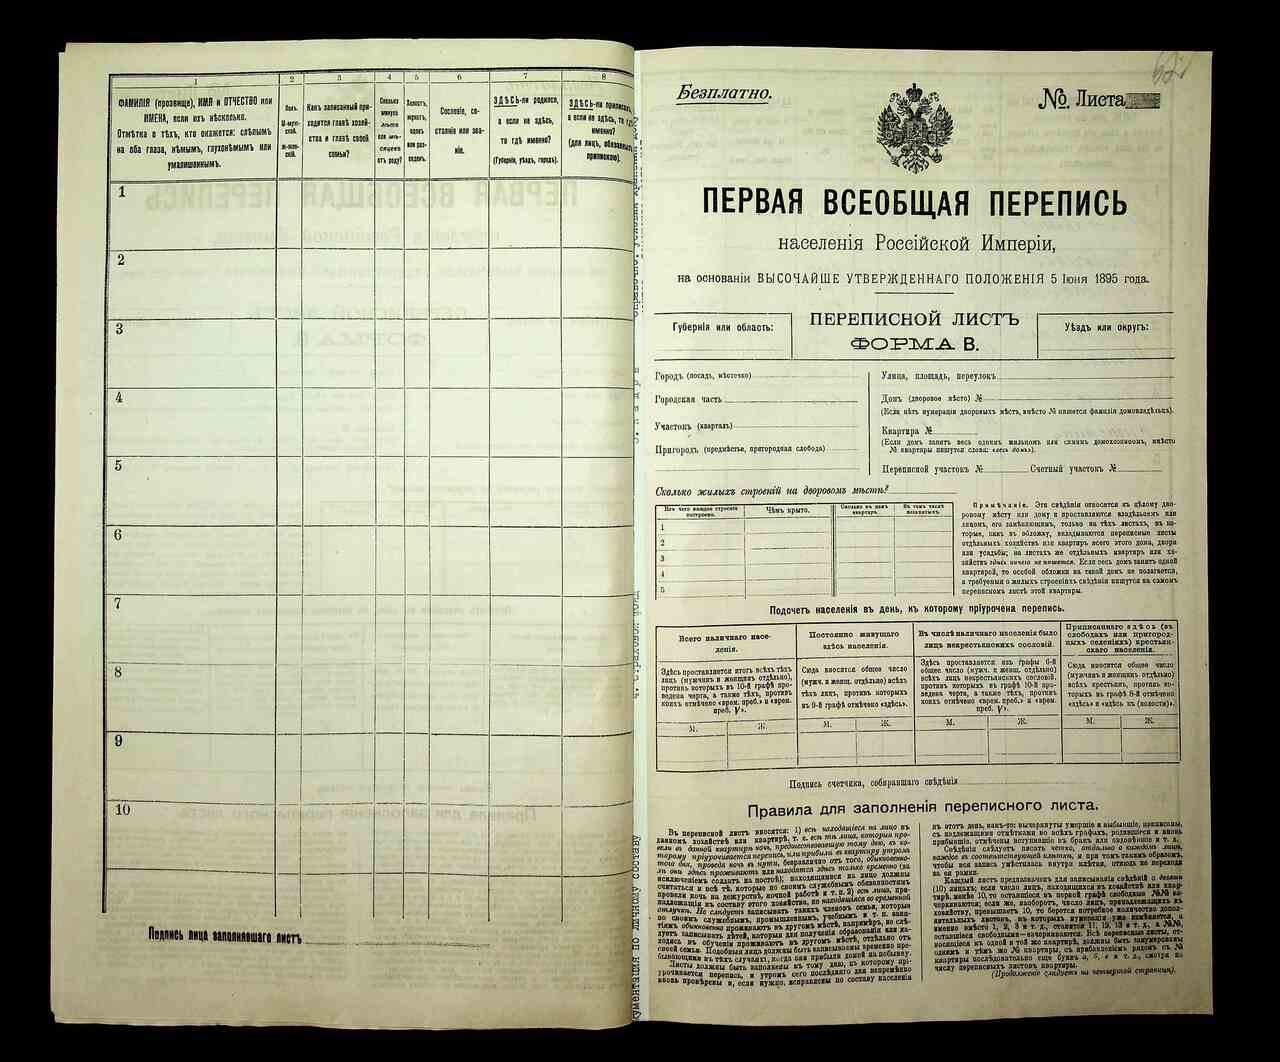 1
2
3
4
5
6
7
8
ФАМИЛІЯ (прозвище), ИМЯ и ОТЧЕСТВО или
ИМЕНА, если ихъ нѣсколько.
Отмѣтка о тѣхъ, кто окажется: слѣпымъ
на оба глаза, нѣмымъ, глухонѣмымъ или
умалишеннымъ.
Полъ.
М-муж-
ской.
Ж-жен-
скій.
Какъ записанный при-
ходится главѣ хозяй-
ства и главѣ своей
семьи?
Сколько
минуло
лѣтъ
или мѣ-
сяцевъ
отъ роду?
Холостъ,
женатъ,
вдовъ
или раз-
веденъ.
Сословіе, со-
стояніе или зва-
ніе.
ЗДѢСЬ-ли родился,
а если не здѣсь,
то гдѣ именно?
(Губернія, уѣздъ, городъ).
ЗДѢСЬ-ли приписанъ,
а если не здѣсь, то гдѣ
именно?
(для лицъ, обязанныхъ
припискою).
1
2
3
4
5
6
7
8
9
10
Подпись лица заполнявшаго листъ
Безплатно.
№ Листа
ПЕРВАЯ ВСЕОБЩАЯ ПЕРЕПИСЬ
населенія Россійской Имперіи,
на основаніи ВЫСОЧАЙШЕ УТВЕРЖДЕННАГО ПОЛОЖЕНІЯ 5 Іюня 1895 года.
Губернія или область:
ПЕРЕПИСНОЙ ЛИСТЪ
ФОРМА В.
Уѣздъ или округъ:
Городъ (посадъ, мѣстечко)
Городская часть
Участокъ (кварталъ)
Пригородъ (предмѣстье, пригородная слобода)
Улица, площадь, переулокъ
Домъ (дворовое мѣсто) №
(Если нѣтъ нумераціи дворовыхъ мѣстъ, вмѣсто № пишется фамилія домовладѣльца).
Квартира №
(Если домъ занятъ весь однимъ жильцомъ или самимъ домохозяиномъ, вмѣсто
№ квартиры пишутся слова: «весь домъ»).
Переписной участокъ № Счетный участокъ №
Сколько жилыхъ строеній на дворовомъ мѣстѣ?
Изъ чего каждое строеніе
построено.
Чѣмъ крыто.
Сколько въ немъ
квартиръ.
Въ томъ числѣ
незанятыхъ.
1
2
3
4
5
Примѣчаніе. Эти свѣдѣнія относятся къ цѣлому дво-
ровому мѣсту или дому и проставляются владѣльцемъ или
лицомъ, его замѣняющимъ, только на тѣхъ листахъ, въ ко-
торые, какъ въ обложку, вкладываются переписные листы
отдѣльныхъ хозяйствъ или квартиръ всего этого дома, двора
или усадьбы; на листахъ же отдѣльныхъ квартиръ или хо-
зяйствъ здѣсь ничего не пишется. Если весь домъ занятъ одной
квартирой, то особой обложки на такой домъ не полагается,
а требуемыя о жилыхъ строеніяхъ свѣдѣнія пишутся на самомъ
переписномъ листѣ этой квартиры.
Подсчетъ населенія въ день, къ которому пріурочена перепись.
Всего наличнаго насе-
ленія.
Постоянно живущаго
здѣсь населенія.
Въ числѣ наличнаго населенія было
лицъ некрестьянскихъ сословій.
Приписаннаго здѣсь (въ
слободахъ или пригород-
ныхъ селеніяхъ) крестьян-
скаго населенія.
Здѣсь проставляется итогъ всѣхъ тѣхъ
лицъ (мужчинъ и женщинъ отдѣльно),
противъ которыхъ въ 10-й графѣ про-
ведена черта, а также тѣхъ, противъ
коихъ отмѣчено «врем. преб.» и «врем.
преб. V».
Сюда вносится общее число
(мужч. и женщ. отдѣльно) всѣхъ
тѣхъ лицъ, противъ которыхъ
въ 9-й графѣ отмѣчено «здѣсь».
Здѣсь проставляется изъ графы 6-й
общее число (мужч. и женщ. отдѣльно)
всѣхъ лицъ некрестьянскихъ сословій,
противъ которыхъ въ графѣ 10-й про-
ведена черта, а также тѣхъ, противъ
коихъ отмѣчено «врем. преб.» и «врем.
преб. V».
Сюда вносится общее число
(мужчинъ и женщинъ отдѣльно)
всѣхъ крестьянъ, противъ ко-
торыхъ въ графѣ 8-й отмѣчено
«здѣсь» и «здѣсь къ (волости)».
М. Ж. М. Ж. М. Ж. М. Ж.
Подпись счетчика, собиравшаго свѣдѣнія
Правила для заполненія переписного листа.
Въ переписной листъ вносятся: 1) всѣ находящіеся на лицо въ
данномъ хозяйствѣ или квартирѣ, т. е. всѣ тѣ лица, которыя про-
вели въ данной квартирѣ ночь, предшествовавшую тому дню, къ ко-
торому пріурочивается перепись, или прибыли въ квартиру утромъ
того дня, проведя ночь въ пути, безразлично отъ того, обыкновенно-
ли они здѣсь проживаютъ или находятся здѣсь только временно (за
исключеніемъ солдатъ на постоѣ); находящимися на лицо должны
считаться и всѣ тѣ, которые по своимъ служебнымъ обязанностямъ
провели ночь на дежурствѣ, ночной работѣ и т. п. 2) всѣ лица, при-
надлежащія къ составу этого хозяйства, но находящіяся во временной
отлучкѣ. Не слѣдуетъ записывать такихъ членовъ семьи, которые
по своимъ служебнымъ, промышленнымъ, учебнымъ и т. п. заня-
тіямъ обыкновенно проживаютъ въ другомъ мѣстѣ, напримѣръ, не слѣ-
дуетъ записывать дѣтей, которыя для полученія образованія или на-
ходясь въ обученіи проживаютъ въ другомъ мѣстѣ, отдѣльно отъ
своей семьи. Подобныя лица должны быть записываемы временно пре-
бывающими въ тѣхъ случаяхъ, когда они прибыли домой на побывку.
Листы должны быть заполнены къ тому дню, къ которому прі-
урочивается перепись, и утромъ сего послѣдняго дня непремѣнно
вновь провѣрены и, если нужно, исправлены по составу населенія
въ этотъ день, какъ-то: вычеркнуты умершіе и выбывшіе, приписаны,
съ надлежащими отмѣтками во всѣхъ графахъ, родившіеся и вновь
прибывшіе, отмѣчены вступившіе въ бракъ или овдовѣвшіе и т. д.
Свѣдѣнія слѣдуетъ писать четко, отдѣльно о каждомъ лицѣ,
каждое въ соотвѣтствующей клѣткѣ, и при томъ такимъ образомъ,
чтобы вся запись умѣстилась внутри клѣтки, отнюдь не переходя
за ея рамки.
Каждый листъ предназначенъ для записыванія свѣдѣній о десяти
(10) лицахъ; если число лицъ, находящихся въ хозяйствѣ или квар-
тирѣ, менѣе 10, то остающіеся въ первой графѣ свободные №№ за-
черкиваются; если же, наоборотъ, число лицъ, принадлежащихъ къ
хозяйству, превышаетъ 10, то берется потребное количество допол-
нительныхъ листовъ, въ которыхъ нумерація уже измѣняется, а
именно вмѣсто 1, 2, 3 и т. д., ставится 11, 12, 13 и т. д., а №№,
оставшіеся свободными—зачеркиваются. Всѣ переписные листы, от-
носящіеся къ одной и той же квартирѣ, должны быть занумерованы
однимъ и тѣмъ же № квартиры, съ прибавленіемъ рядомъ съ №
квартиры послѣдовательно еще буквъ а, б, в и т. д., смотря по
числу переписныхъ листовъ квартиры.
(Продолженіе слѣдуетъ на четвертой страницѣ).